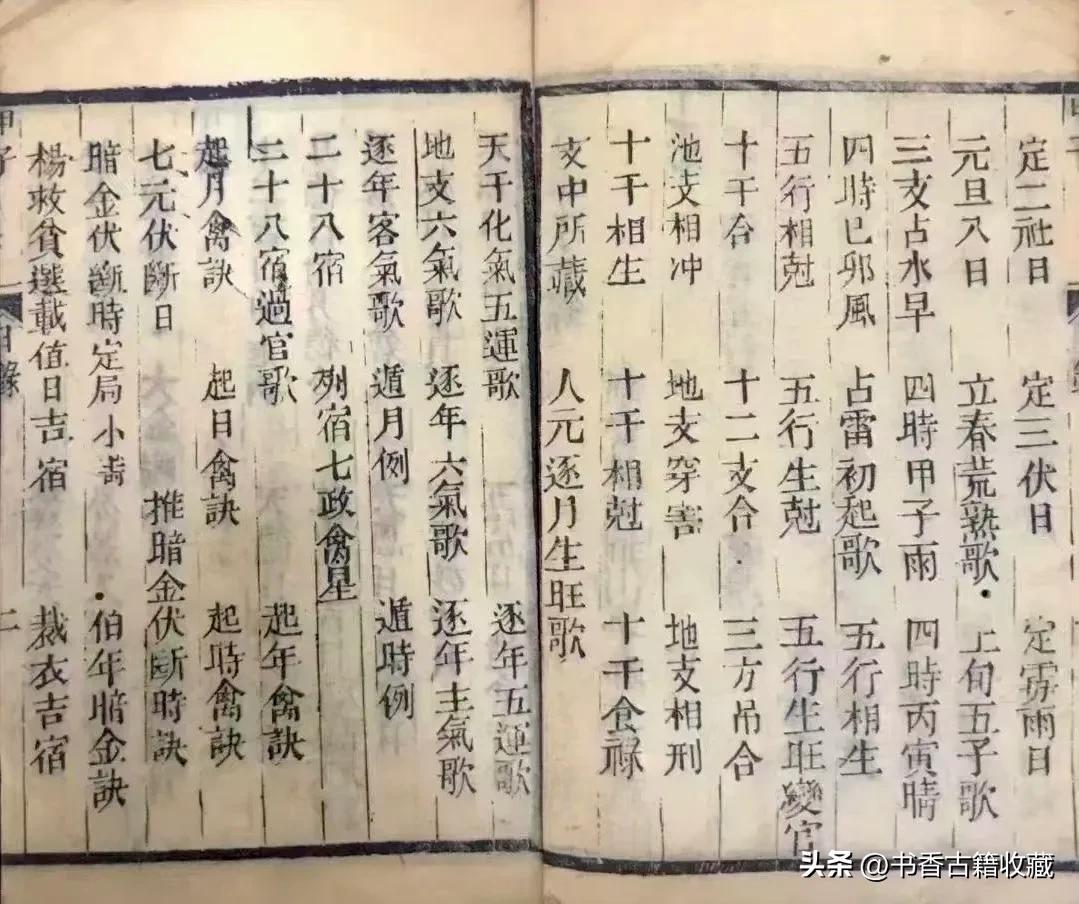 定二社日 定三伏日 定霉雨日
元旦八日 立春荒熟歌 上旬五子歌
三支占水旱 四時甲子雨 四時丙寅晴
四時已卯風 占雷初起歌 五行相生
五行相尅 五行生尅 五行生旺變官
十干合 十二支合 三方吊合
池支相冲 地支穿害 地支相刑
十干相生 十干相尅 十干食祿
支中所藏 人元逐月生旺歌
天干化氣五運歌 逐年五運歌
地支六氣歌 逐年六氣歌 逐年主氣歌
逐年客氣歌 遁月例 遁時例
二十八宿 列宿七政禽星
二十八宿過官歌 起年禽訣
起月禽訣 起日禽訣 起時禽訣
七元伏斷日 推暗金伏斷時訣
暗金伏斷時定局小 伯年暗金訣
楊救貧選載值日吉宿 裁衣吉宿
目錄 二
头条 @书香古籍收藏